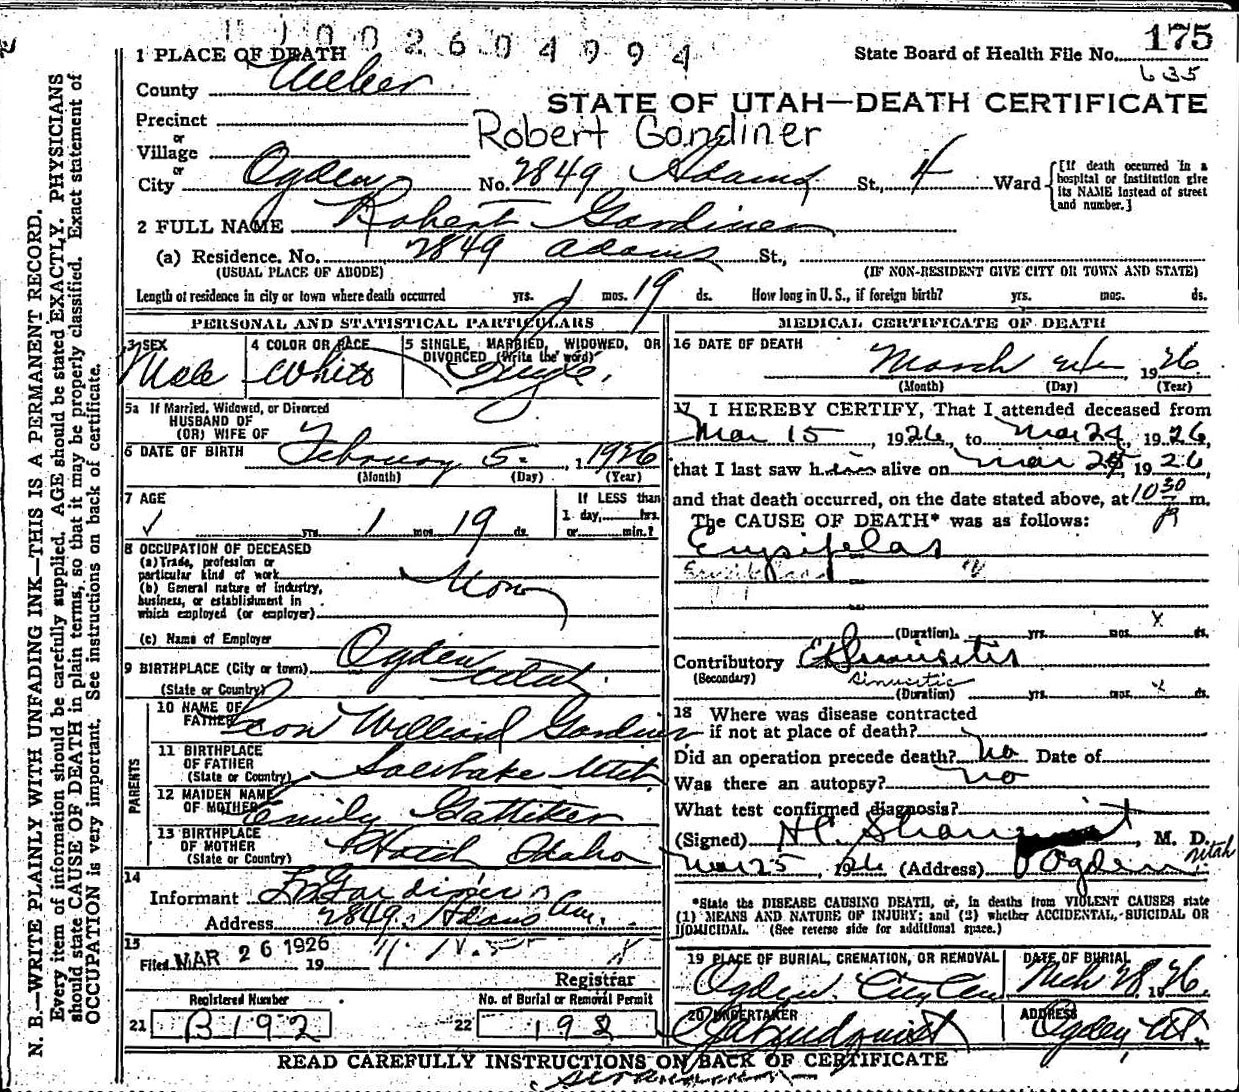 1002604994
175
State Board of Health File No.
635
1 PLACE OF DEATH
County Weber
STATE OF UTAH—DEATH CERTIFICATE
Precinct
Robert Gardiner
or
Village
or
City Ogden No. 2849 Adams St., 4 Ward
[If death occurred in a hospital or institution give its NAME instead of street and number.]
2 FULL NAME Robert Gardiner
(a) Residence. No. 2849 Adams St.,
(USUAL PLACE OF ABODE) (IF NON-RESIDENT GIVE CITY OR TOWN AND STATE)
Length of residence in city or town where death occurred yrs. 1 mos. 19 ds. How long in U. S., if foreign birth? yrs. mos. ds.
PERSONAL AND STATISTICAL PARTICULARS
3 SEX Male
4 COLOR OR RACE White
5 SINGLE, MARRIED, WIDOWED, OR DIVORCED (Write the word) Single
5a If Married, Widowed, or Divorced
HUSBAND OF
(OR) WIFE OF
6 DATE OF BIRTH February 5 1926
(Month) (Day) (Year)
7 AGE yrs. 1 mos. 19 ds.
If LESS than 1 day, hrs. or min.?
8 OCCUPATION OF DECEASED
(a) Trade, profession or particular kind of work
(b) General nature of industry, business, or establishment in which employed (or employer)
(c) Name of Employer
9 BIRTHPLACE (City or town) Ogden
(State or Country) Utah
PARENTS
10 NAME OF FATHER Leon Willard Gardiner
11 BIRTHPLACE OF FATHER
(State or Country) Salt Lake Utah
12 MAIDEN NAME OF MOTHER Emily Gattiker
13 BIRTHPLACE OF MOTHER
(State or Country) Idaho
14
Informant L W Gardiner
Address 2849 Adams Av.
15
Filed MAR 26 1926 19
Registrar
Registered Number
21 B192
No. of Burial or Removal Permit
22 198
MEDICAL CERTIFICATE OF DEATH
16 DATE OF DEATH
March 24 1926
(Month) (Day) (Year)
17 I HEREBY CERTIFY, That I attended deceased from
Mar 15, 1926, to Mar 24, 1926,
that I last saw him alive on Mar 24, 1926
and that death occurred, on the date stated above, at 10 30 m.
The CAUSE OF DEATH* was as follows:
Erysipelas
(Duration) yrs. mos. ds.
Contributory
(Secondary)
sinusitis
(Duration) yrs. mos. ds.
18 Where was disease contracted
if not at place of death?
Did an operation precede death? No Date of
Was there an autopsy? No
What test confirmed diagnosis?
(Signed) M. D.
Mar 25, 1926 (Address) Ogden Utah
*State the DISEASE CAUSING DEATH, or, in deaths from VIOLENT CAUSES state
(1) MEANS AND NATURE OF INJURY; and (2) whether ACCIDENTAL, SUICIDAL OR
HOMICIDAL. (See reverse side for additional space.)
19 PLACE OF BURIAL, CREMATION, OR REMOVAL
Ogden City Cem
DATE OF BURIAL
Mch 28 1926.
20 UNDERTAKER
ADDRESS
Ogden, Ut.
READ CAREFULLY INSTRUCTIONS ON BACK OF CERTIFICATE
N. B.—WRITE PLAINLY WITH UNFADING INK—THIS IS A PERMANENT RECORD.
Every item of information should be carefully supplied. AGE should be stated EXACTLY. PHYSICIANS
should state CAUSE OF DEATH in plain terms, so that it may be properly classified. Exact statement of
OCCUPATION is very important. See instructions on back of certificate.